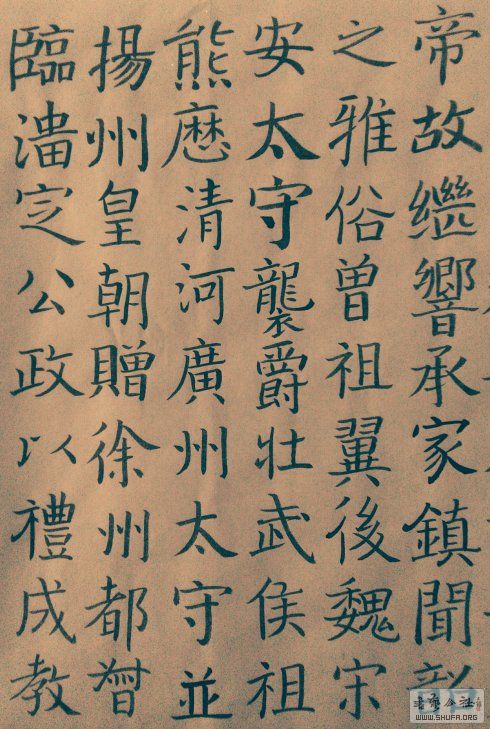 帝故繼響承家鎮聞
之雅俗曾祖翼後魏宋
安太守襲爵壯武侯祖
熊歷清河廣州太守並
揚州皇朝贈徐州都督
臨淄定公政以禮成教
WWW.SHUFA.ORG